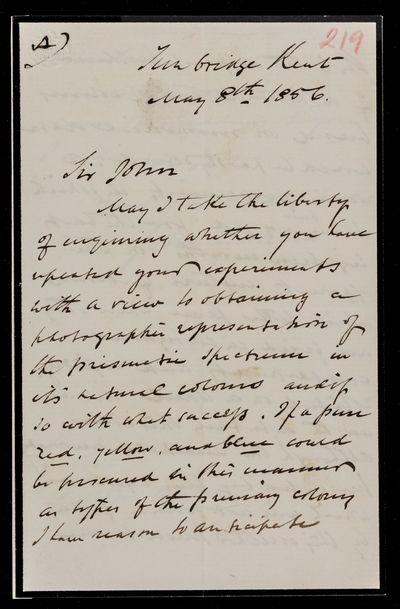 A)
219
Tunbridge Kent
May 8th 1856.
Sir John
May I take the liberty
of enquiring whether you have
repeated your experiments
with a view to obtaining a
photographic representation of
the prismatic spectrum in
its natural colours and if
so with what success. If a pure
red, yellow, and blue could
be procured in this manner
as types of the primary colours
I have reason to anticipate